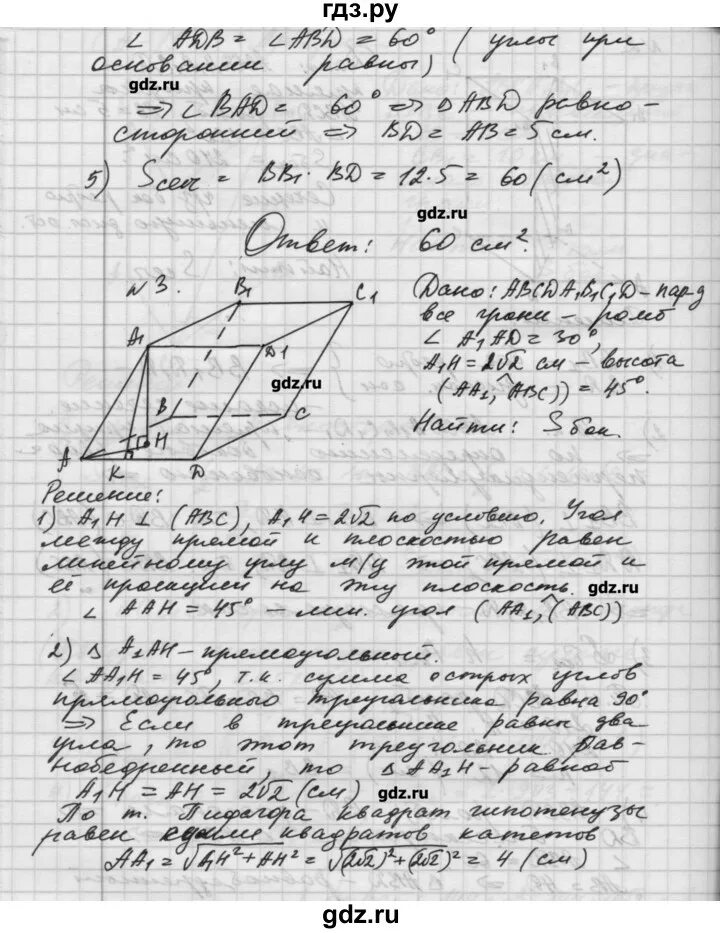 гдз.ру
∠ ADB = ∠ ABD = 60° ( углы при
основании равны)
gdz.ru
⇒ ∠ BAD = 60° ⇒ △ ABD равно-
сторонний ⇒ BD = AB = 5 см.
5) Sсеч = BB₁ · BD = 12·5 = 60 (см²)
gdz.ru
Ответ: 60 см².
N 3.
B₁
C₁
A₁
D1
gdz.ru
B
C
H
A
K
D
Дано: ABCDA₁B₁C₁D - пар-д
все грани - ромб
∠ A₁AD = 30°,
A₁H = 2√2 см - высота
(AA₁, ABC)) = 45°.
Найти: S бок.
Решение:
1) A₁H ⊥ (ABC), A₁H = 2√2 по условию. Угол
между прямой и плоскостью равен
линейному углу м/ц этой прямой и
её проекцией на эту плоскость.
gdz.ru
∠ AAH = 45° - лин. угол (AA₁,(ABC))
2) △ A₁AH - прямоугольный.
∠ AA₁H = 45°, т.к. сумма острых углов
прямоугольного треугольника равна 90°
⇒ Если в треугольнике равны два
угла, то этот треугольник рав-
нобедренный, то △ AA₁H - равноб
A₁H = AH = 2√2 (см)
gdz.ru
По т. Пифагора квадрат гипотенузы
равен сумме квадратов катетов
AA₁ = √A₁H² + AH² = √(2√2)²+(2√2)² = 4 (см)
gdz.ru